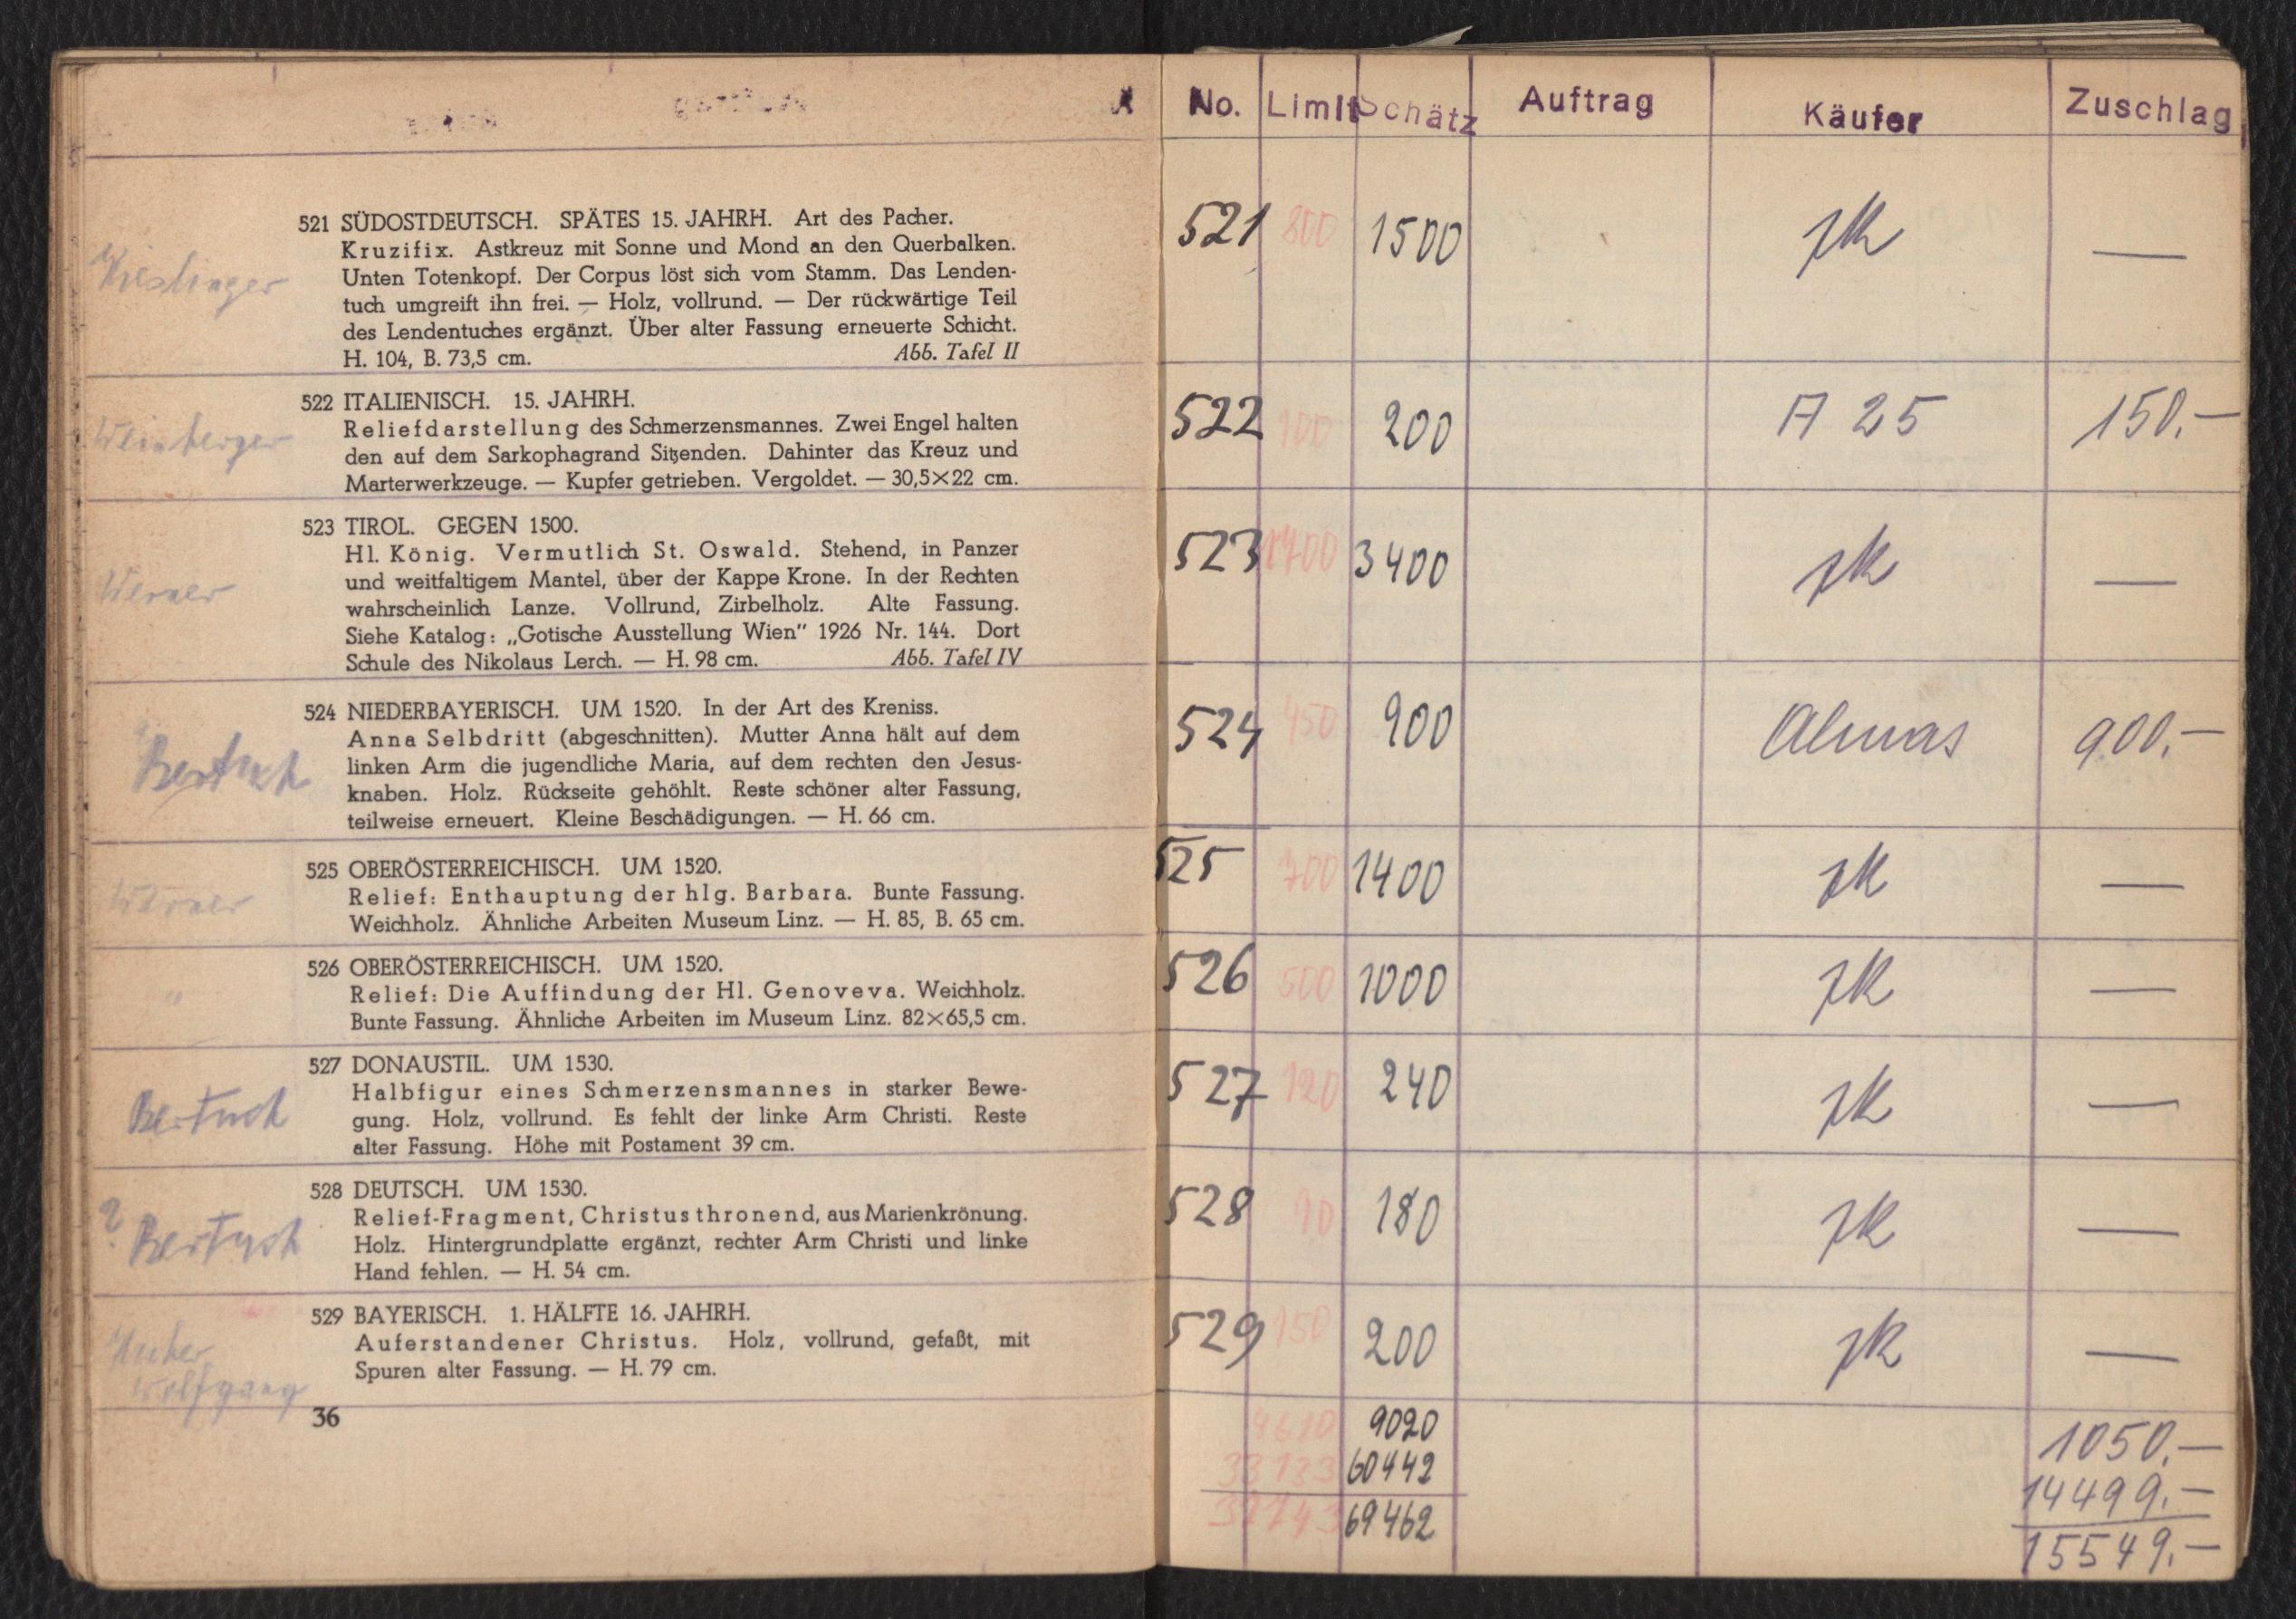 521 SÜDOSTDEUTSCH. SPÄTES 15. JAHRH. Art des Pacher.
Kruzifix. Astkreuz mit Sonne und Mond an den Querbalken.
Unten Totenkopf. Der Corpus löst sich vom Stamm. Das Lenden-
tuch umgreift ihn frei. — Holz, vollrund. — Der rückwärtige Teil
des Lendentuches ergänzt. Über alter Fassung erneuerte Schicht.
H. 104, B. 73,5 cm. Abb. Tafel II
Weinberger
522 ITALIENISCH. 15. JAHRH.
Reliefdarstellung des Schmerzensmannes. Zwei Engel halten
den auf dem Sarkophagrand Sitzenden. Dahinter das Kreuz und
Marterwerkzeuge. — Kupfer getrieben. Vergoldet. — 30,5×22 cm.
Werner
523 TIROL. GEGEN 1500.
Hl. König. Vermutlich St. Oswald. Stehend, in Panzer
und weitfaltigem Mantel, über der Kappe Krone. In der Rechten
wahrscheinlich Lanze. Vollrund, Zirbelholz. Alte Fassung.
Siehe Katalog: „Gotische Ausstellung Wien" 1926 Nr. 144. Dort
Schule des Nikolaus Lerch. — H. 98 cm. Abb. Tafel IV
Bertuch
524 NIEDERBAYERISCH. UM 1520. In der Art des Kreniss.
Anna Selbdritt (abgeschnitten). Mutter Anna hält auf dem
linken Arm die jugendliche Maria, auf dem rechten den Jesus-
knaben. Holz. Rückseite gehöhlt. Reste schöner alter Fassung,
teilweise erneuert. Kleine Beschädigungen. — H. 66 cm.
Werner
525 OBERÖSTERREICHISCH. UM 1520.
Relief: Enthauptung der hlg. Barbara. Bunte Fassung.
Weichholz. Ähnliche Arbeiten Museum Linz. — H. 85, B. 65 cm.
"
526 OBERÖSTERREICHISCH. UM 1520.
Relief: Die Auffindung der Hl. Genoveva. Weichholz.
Bunte Fassung. Ähnliche Arbeiten im Museum Linz. 82×65,5 cm.
Bertuch
527 DONAUSTIL. UM 1530.
Halbfigur eines Schmerzensmannes in starker Bewe-
gung. Holz, vollrund. Es fehlt der linke Arm Christi. Reste
alter Fassung. Höhe mit Postament 39 cm.
? Bertuch
528 DEUTSCH. UM 1530.
Relief-Fragment, Christus thronend, aus Marienkrönung.
Holz. Hintergrundplatte ergänzt, rechter Arm Christi und linke
Hand fehlen. — H. 54 cm.
Huber
Wolfgang
529 BAYERISCH. 1. HÄLFTE 16. JAHRH.
Auferstandener Christus. Holz, vollrund, gefaßt, mit
Spuren alter Fassung. — H. 79 cm.
36
No. Limit Schätz Auftrag Käufer Zuschlag
521 800 1500 zk —
522 100 200 A 25 150.—
523 1700 3400 zk —
524 450 900 Almas 900.—
525 700 1400 zk —
526 500 1000 zk —
527 120 240 zk —
528 90 180 zk —
529 150 200 zk —
4610 9020 1050.—
33133 60442 14499.—
37743 69462 15549.—